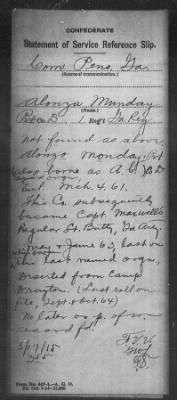 CONFEDERATE
Statement of Service Reference Slip.
Com Pens, Ga
(Source of communication.)
Alonza Munday
(Name.)
Pvt Co D 1 Reg't Ga Reg
not found as above
Alonzo Monday, Pvt
also borne as A. Co D
Enl. Mch. 4, 61.
This Co subsequently
became Capt. Maxwell's
Regular Lt. Batty, Ga Arty.
May & June 63, last on
this last named orgn.
Deserted from Camp
(Last roll on
file, Sept & Oct 64)
No later or p. of w.
record fd.
Form No. 447-1.—A. G. O.